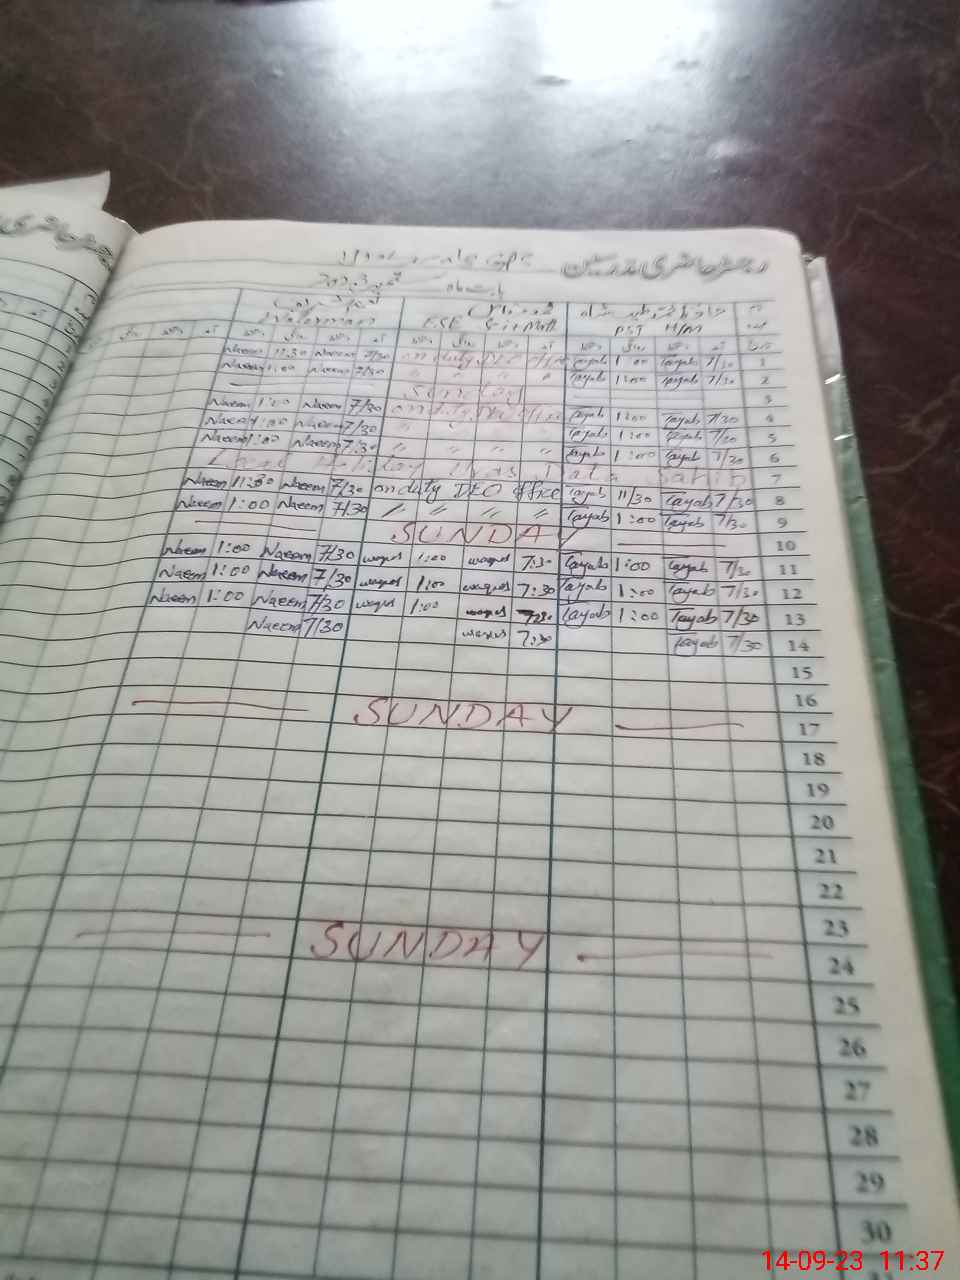 رجسٹر حاضری مدرسین
بابت ماہ
P.S.T H/M
Naeem 11:30 Naeem 7/30 on duty Tayab 1:00 Tayab 7/30 1
Naeem 1:00 Naeem 7/30 " " " Tayab 1:00 Tayab 7/30 2
Sunday 3
Naeem 1:00 Naeem 7/30 on duty Tayab 1:00 Tayab 7/30 4
Naeem 1:00 Naeem 7/30 " " " Tayab 1:00 Tayab 7/30 5
Naeem 1:00 Naeem 7/30 " " " Tayab 1:00 Tayab 7/30 6
Local Holiday 7
Naeem 11:30 Naeem 7/30 on duty DEO office Tayab 11/30 Tayab 7/30 8
Naeem 1:00 Naeem 7/30 " " " " Tayab 1:00 Tayab 7/30 9
SUNDAY 10
Naeem 1:00 Naeem 7/30 waqas 1:00 waqas 7:30 Tayab 1:00 Tayab 7/30 11
Naeem 1:00 Naeem 7/30 waqas 1:00 waqas 7:30 Tayab 1:00 Tayab 7/30 12
Naeem 1:00 Naeem 7/30 waqas 1:00 waqas 7:30 Tayab 1:00 Tayab 7/30 13
Naeem 7/30 waqas 7:30 Tayab 7/30 14
15
16
SUNDAY 17
18
19
20
21
22
23
SUNDAY 24
25
26
27
28
29
30
14-09-23 11:37